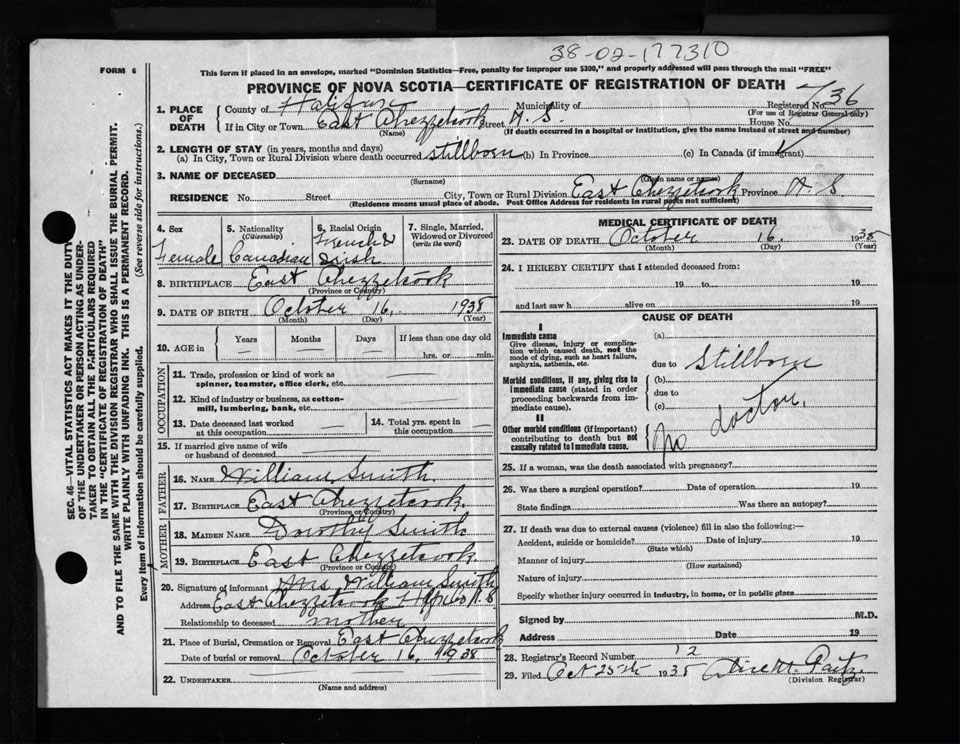 38-02-177310
FORM 6
This form if placed in an envelope, marked "Dominion Statistics—Free, penalty for improper use $300," and properly addressed will pass through the mail "FREE"
PROVINCE OF NOVA SCOTIA—CERTIFICATE OF REGISTRATION OF DEATH
1. PLACE OF DEATH County of Halifax Municipality of Registered No. 36
(For use of Registrar General only)
If in City or Town East Chezzetcook Street N.S. House No.
(Name) (If death occurred in a hospital or institution, give the name instead of street and number)
2. LENGTH OF STAY (in years, months and days)
(a) In City, Town or Rural Division where death occurred stillborn (b) In Province (c) In Canada (if immigrant)
3. NAME OF DECEASED
(Surname) (Given name or names)
RESIDENCE No. Street City, Town or Rural Division East Chezzetcook Province N.S
(Residence means usual place of abode. Post Office Address for residents in rural parts not sufficient)
4. Sex 5. Nationality (Citizenship) 6. Racial Origin 7. Single, Married, Widowed or Divorced (write the word)
Female Canadian French & Irish
8. BIRTHPLACE East Chezzetcook
(Province or Country)
9. DATE OF BIRTH October 16, 1938
(Month) (Day) (Year)
10. AGE in Years Months Days If less than one day old
hrs. or min.
OCCUPATION
11. Trade, profession or kind of work as spinner, teamster, office clerk, etc.
12. Kind of industry or business, as cotton-mill, lumbering, bank, etc.
13. Date deceased last worked at this occupation
14. Total yrs. spent in this occupation
15. If married give name of wife or husband of deceased
FATHER
16. NAME William Smith
17. BIRTHPLACE East Chezzetcook
(Province or Country)
MOTHER
18. MAIDEN NAME Dorothy Smith
19. BIRTHPLACE East Chezzetcook
(Province or Country)
20. Signature of informant Mrs. William Smith
Address East Chezzetcook Hfx Co N.S
Relationship to deceased mother
21. Place of Burial, Cremation or Removal East Chezzetcook
Date of burial or removal October 16, 1938
22. UNDERTAKER
(Name and address)
MEDICAL CERTIFICATE OF DEATH
23. DATE OF DEATH October 16. 1938
(Month) (Day) (Year)
24. I HEREBY CERTIFY that I attended deceased from:
19 to 19
and last saw h alive on 19
CAUSE OF DEATH
I
Immediate cause
Give disease, injury or complication which caused death, not the mode of dying, such as heart failure, asphyxia, asthenia, etc.
(a)
due to Stillborn
Morbid conditions, if any, giving rise to immediate cause (stated in order proceeding backwards from immediate cause).
(b)
due to
(c)
II
Other morbid conditions (if important) contributing to death but not causally related to immediate cause.
No doctor.
25. If a woman, was the death associated with pregnancy?
26. Was there a surgical operation? Date of operation 19
State findings Was there an autopsy?
27. If death was due to external causes (violence) fill in also the following:—
Accident, suicide or homicide? Date of injury 19
(State which)
Manner of injury
(How sustained)
Nature of injury
Specify whether injury occurred in industry, in home, or in public place
Signed by M.D.
Address Date 19
28. Registrar's Record Number 12
29. Filed Oct 25th 1938
(Division Registrar)
SEC. 46—VITAL STATISTICS ACT MAKES IT THE DUTY
OF THE UNDERTAKER OR PERSON ACTING AS UNDER-
TAKER TO OBTAIN ALL THE PARTICULARS REQUIRED
IN THE "CERTIFICATE OF REGISTRATION OF DEATH"
AND TO FILE THE SAME WITH THE DIVISION REGISTRAR WHO SHALL ISSUE THE BURIAL PERMIT.
WRITE PLAINLY WITH UNFADING INK. THIS IS A PERMANENT RECORD.
Every item of information should be carefully supplied. (See reverse side for instructions.)